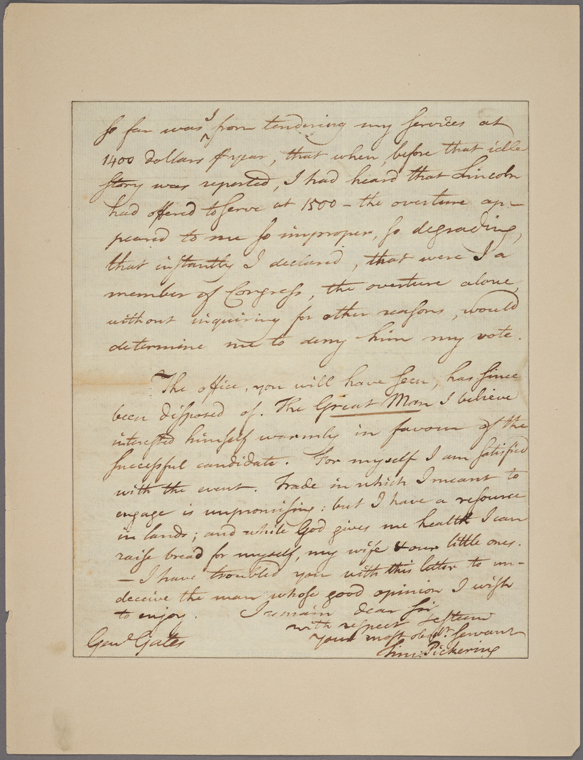 so far was I from tendering my services at
1400 dollars p year, that when, before that idle
story was reported, I had heard that Lincoln
had offered to serve at 1500 - the overture ap-
peared to me so improper, so degrading,
that instantly I declared, that were I a
member of Congress, the overture alone,
without inquiring for other reasons, would
determine me to deny him my vote.
The office, you will have seen, has since
been disposed of. The Great Man I believe
interested himself warmly in favour of the
successful candidate. For myself I am satisfied
with the event. Trade in which I meant to
engage is unpromising: but I have a resource
in lands; and while God gives me health I can
raise bread for myself, my wife & our little ones.
- I have troubled you with this letter to un-
deceive the man whose good opinion I wish
to enjoy. I remain dear Sir,
with respect & esteem
your most obedt. servant
Tim: Pickering
Genl. Gates